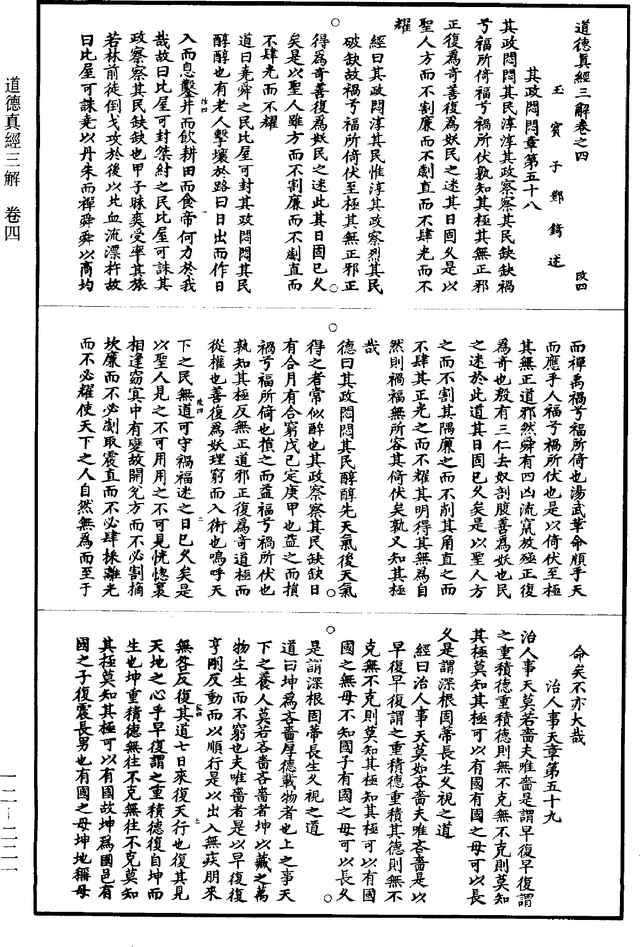 道德真經三解卷之四
玉賓子鄧錡述 改四
其政悶悶章第五十八
其政悶悶其民淳淳其政察察其民缺缺禍
兮福所倚福兮禍所伏孰知其極其無正邪
正復為奇善復為妖民之迷其日固久是以
聖人方而不割廉而不劌直而不肆光而不
耀
經曰其政悶淳其民惟淳其政察烈其民
破缺故禍兮福所倚伏至極其無正邪正
得為奇善復為妖民之迷此其日固已久
矣是以聖人雖方而不割廉而不劌直而
不肆光而不耀
道曰堯舜之民比屋可封其政悶悶其民
醇醇也有老人擊壤於路曰日出而作日
入而息鑿井而飲耕田而食帝何力於我
哉故曰比屋可封桀紂之民比屋可誅其
政察察其民缺缺也甲子昧爽受率其旅
若林前徒倒戈攻於後以北血流漂杵故
曰比屋可誅堯以丹朱而禪舜舜以商均
而禪禹禍兮福所倚也湯武革命順乎天
而應乎人福兮禍所伏也是以倚伏至極
其無正道邪然舜有四凶流竄放殛正復
為奇也殷有三仁去奴剖腹善為妖也民
之迷於此道其日固已久矣是以聖人方
之而不割其隅廉之而不削其角直之而
不肆其正光之而不耀其明得其無為自
然則禍福無所容其倚伏矣孰又知其極
哉
德曰其政悶悶其民醇醇先天氣後天氣
得之者常似醉也其政察察其民缺缺日
有合月有合窮戊己定庚甲也益之而損
禍兮福所倚也損之而益福兮禍所伏也
孰知其極反無正道邪正復為奇道極而
從權也善復為妖理窮而入術也嗚呼天
下之民無道可守禍福迷之日已久矣是
以聖人見之不可用用之不可見恍惚裏
相逢窈冥中有變故開兌方而不必割摘
坎廉而不必劌取震直而不必肆採離光
而不必耀使天下之人自然無為而至于
命矣不亦大哉
治人事天章第五十九
治人事天莫若嗇夫唯嗇是謂早復早復謂
之重積德重積德則無不克無不克則莫知
其極莫知其極可以有國有國之母可以長
久是謂深根固蒂長生久視之道
經曰治人事天莫如吝嗇夫唯吝嗇是以
早復早復謂之重積德重積其德則無不
克無不克則莫知其極知其極可以有國
國之無母不知國子有國之母可以長久
是謂深根固蒂長生久視之道
道曰坤為吝嗇厚德載物者也上之事天
下之養人莫若吝嗇吝嗇者坤以藏之萬
物生生而不窮也夫唯嗇者是以早復復
亨剛反動而以順行是以出入無疾朋來
無咎反復其道七日來復天行也復其見
天地之心乎早復謂之重積德復自坤而
生也坤重積德無往不克無往不克莫知
其極莫知其極可以有國故坤為國邑有
國之子復震長男也有國之母坤地稱母
道德真經三解 卷四
一二－二二一